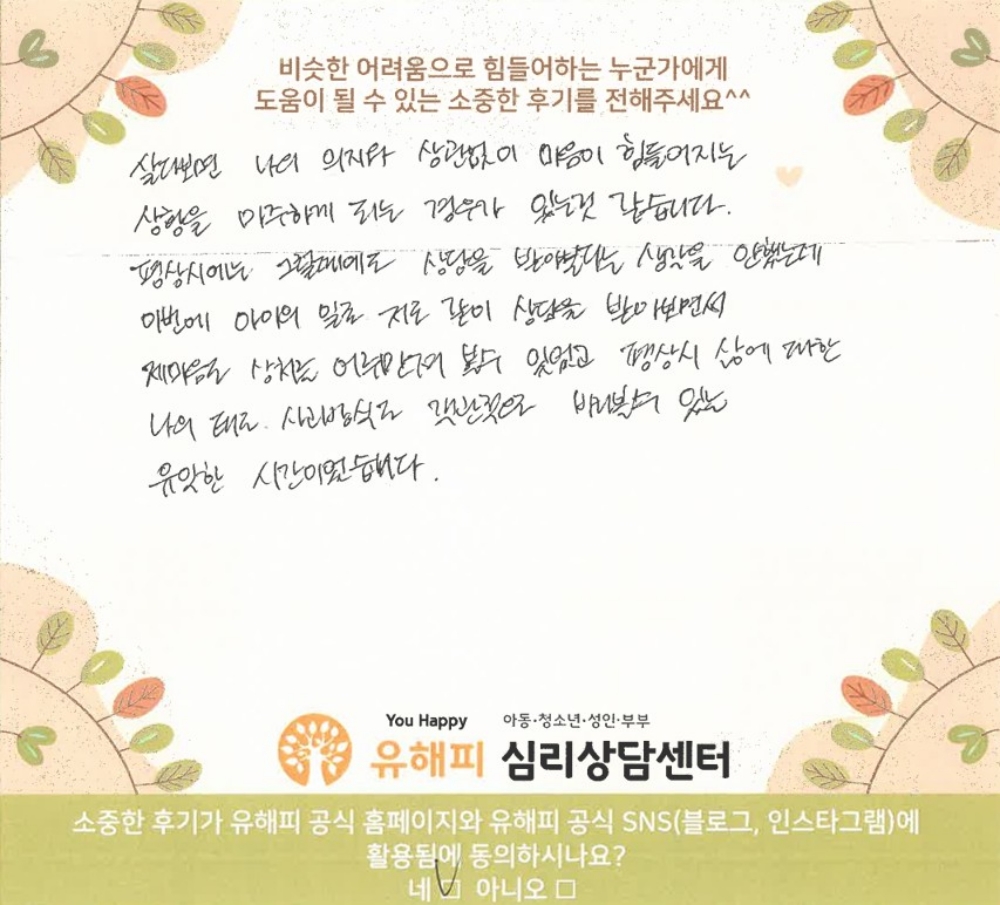 비슷한 어려움으로 힘들어하는 누군가에게
도움이 될 수 있는 소중한 후기를 전해주세요^^
살다보면 나의 의지와 상관없이 마음이 힘들어지는
상황을 마주하게 되는 경우가 있는것 같습니다.
평상시에는 그럴때에도 상담을 받아본다는 생각을 안했는데
이번에 아이의 일로 저도 같이 상담을 받아보면서
제마음도 상처도 어루만져 볼수 있었고 평상시 삶에 대한
나의 태도. 사고방식도 객관적으로 바라볼수 있는
유익한 시간이었습니다.
You Happy 아동·청소년·성인·부부
유해피 심리상담센터
소중한 후기가 유해피 공식 홈페이지와 유해피 공식 SNS(블로그, 인스타그램)에
활용됨에 동의하시나요?
네 ☑ 아니오 □